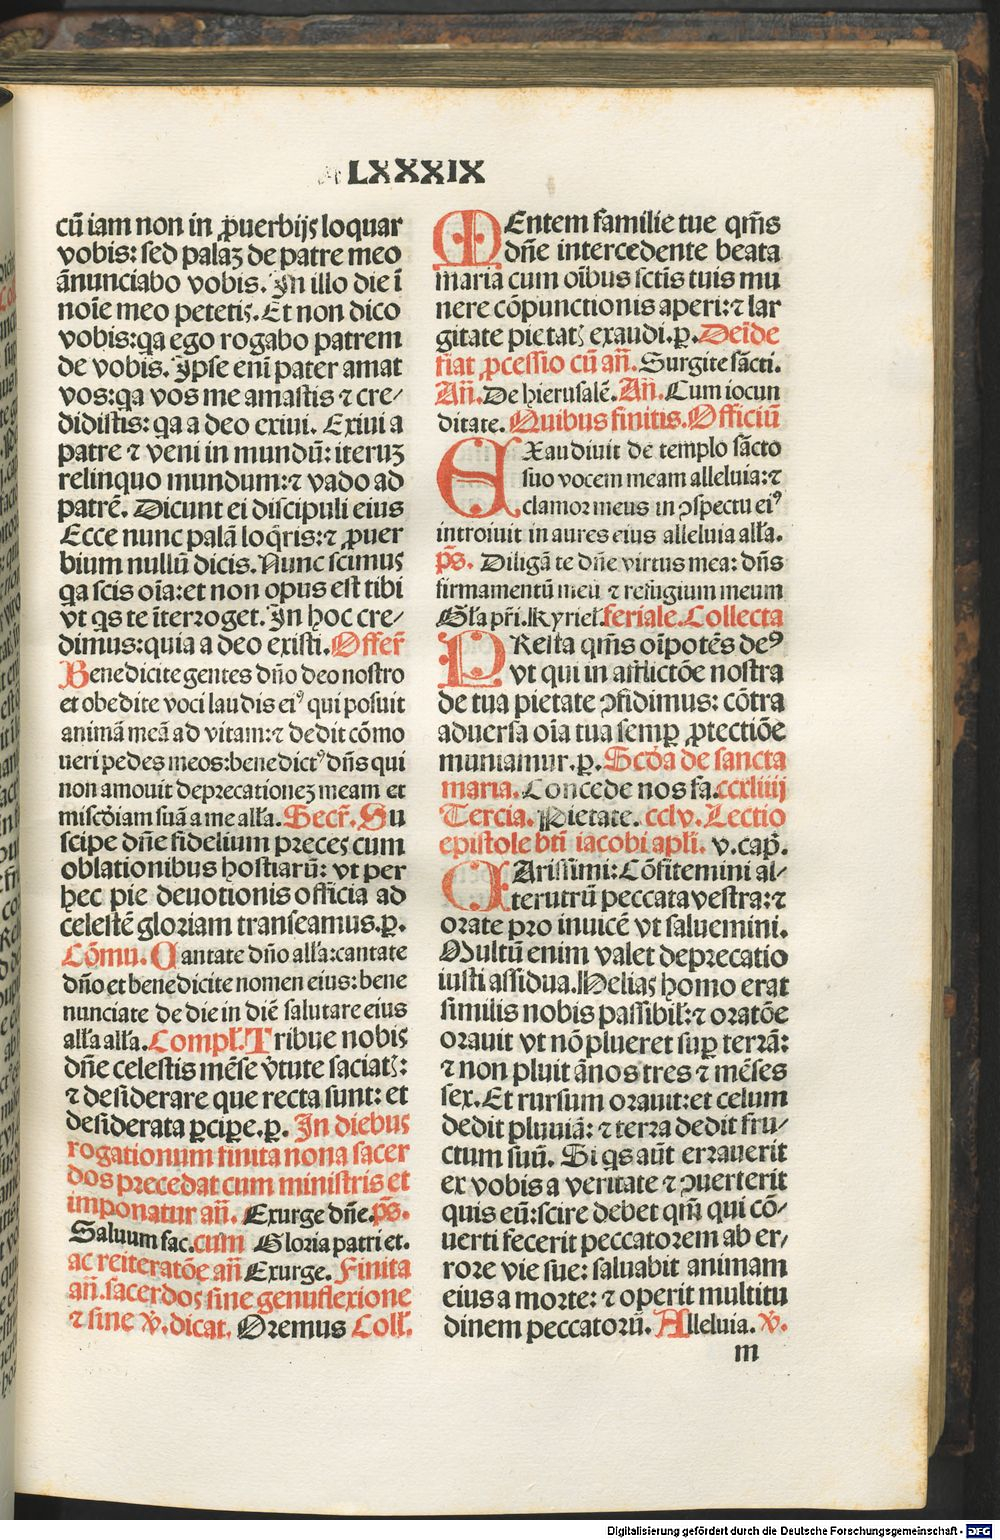 LXXXIX
cū iam non in ꝓuerbijs loquar
vobis: sed palaʒ de patre meo
ānunciabo vobis. In illo die ī
noīe meo petetis. Et non dico
vobis: qa ego rogabo patrem
de vobis. Ipse eni pater amat
vos: qa vos me amastis ⁊ cre/
didistis: qa a deo exiui. Exiui a
patre ⁊ veni in mundū: iteruʒ
relinquo mundum: ⁊ vado ad
patrē. Dicunt ei discipuli eius
Ecce nunc palā loq̄ris: ⁊ ꝓuer
bium nullū dicis. Nunc scimus
qa scis oīa: et non opus est tibi
vt qs te īterroget. In hoc cre/
dimus: quia a deo existi. Offer̄
Benedicite gentes dn̄o deo nostro
et obedite voci laudis eiꝰ qui posuit
animā meā ad vitam: ⁊ dedit cōmo
ueri pedes meos: benedictꝰ dn̄s qui
non amouit deprecationeʒ meam et
misc̄diam suā a me all'a. Secr̄. Su
scipe dn̄e fidelium preces cum
oblationibus hostiarū: vt per
hec pie deuotionis officia ad
celestē gloriam transeamus. ꝑ.
Cōmu. Cantate dn̄o all'a: cantate
dn̄o et benedicite nomen eius: bene
nunciate de die in diē salutare eius
all'a all'a. Compl'. Tribue nobis
dn̄e celestis mēse v̄tute saciatꝭ:
⁊ desiderare que recta sunt: et
desiderata ꝑcipe. ꝑ. In diebus
rogationum finita nona sacer
dos precedat cum ministris et
imponatur an̄. Exurge dn̄e. ps̄.
Saluum fac. cum Gloria patri et.
ac reiteratōe an̄ Exurge. Finita
an̄. sacerdos sine genuflexione
⁊ sine v̄. dicat. Oremus Coll'.
MEntem familie tue qm̄s
dn̄e intercedente beata
maria cum oībus sctīs tuis mu
nere cōpunctionis aperi: ⁊ lar
gitate pietatꝭ exaudi. ꝑ. Deīde
fiat ꝓcessio cū an̄. Surgite sācti.
An̄. De hierusalē. An̄. Cum iocun
ditate. Quibus finitis. Officiū
EXaudiuit de templo sācto
suo vocem meam alleluia: ⁊
clamor meus in ꝯspectu eiꝰ
introiuit in aures eius alleluia all'a.
ps̄. Diligā te dn̄e virtus mea: dn̄s
firmamentū meū ⁊ refugium meum
Gl'a pr̄i. Kyriel'. feriale. Collecta
PResta qm̄s oīpotēs deꝰ
vt qui in afflictōe nostra
de tua pietate ꝯfidimus: cōtra
aduersa oīa tua semꝑ ꝓtectiōe
muniamur. ꝑ. Scd̄a de sancta
maria. Concede nos fa. ccxliiij
Tercia. Pietate. cclv. Lectio
epistole bt̄i iacobi apl'i. v. cap̄.
CArissimi: Cōfitemini al/
terutrū peccata vestra: ⁊
orate pro inuicē vt saluemini.
Multū enim valet deprecatio
iusti assidua. Helias homo erat
similis nobis passibil': ⁊ oratōe
orauit vt nō plueret suꝑ terrā:
⁊ non pluit ānos tres ⁊ mēses
sex. Et rursum orauit: et celum
dedit pluuiā: ⁊ terra dedit fru/
ctum suū. Si qs aūt errauerit
ex vobis a veritate ⁊ ꝯuerterit
quis eū: scire debet qm̄ qui cō/
uerti fecerit peccatorem ab er/
rore vie sue: saluabit animam
eius a morte: ⁊ operit multitu
dinem peccatorū. Alleluia. v̄.
m
Digitalisierung gefördert durch die Deutsche Forschungsgemeinschaft - DFG